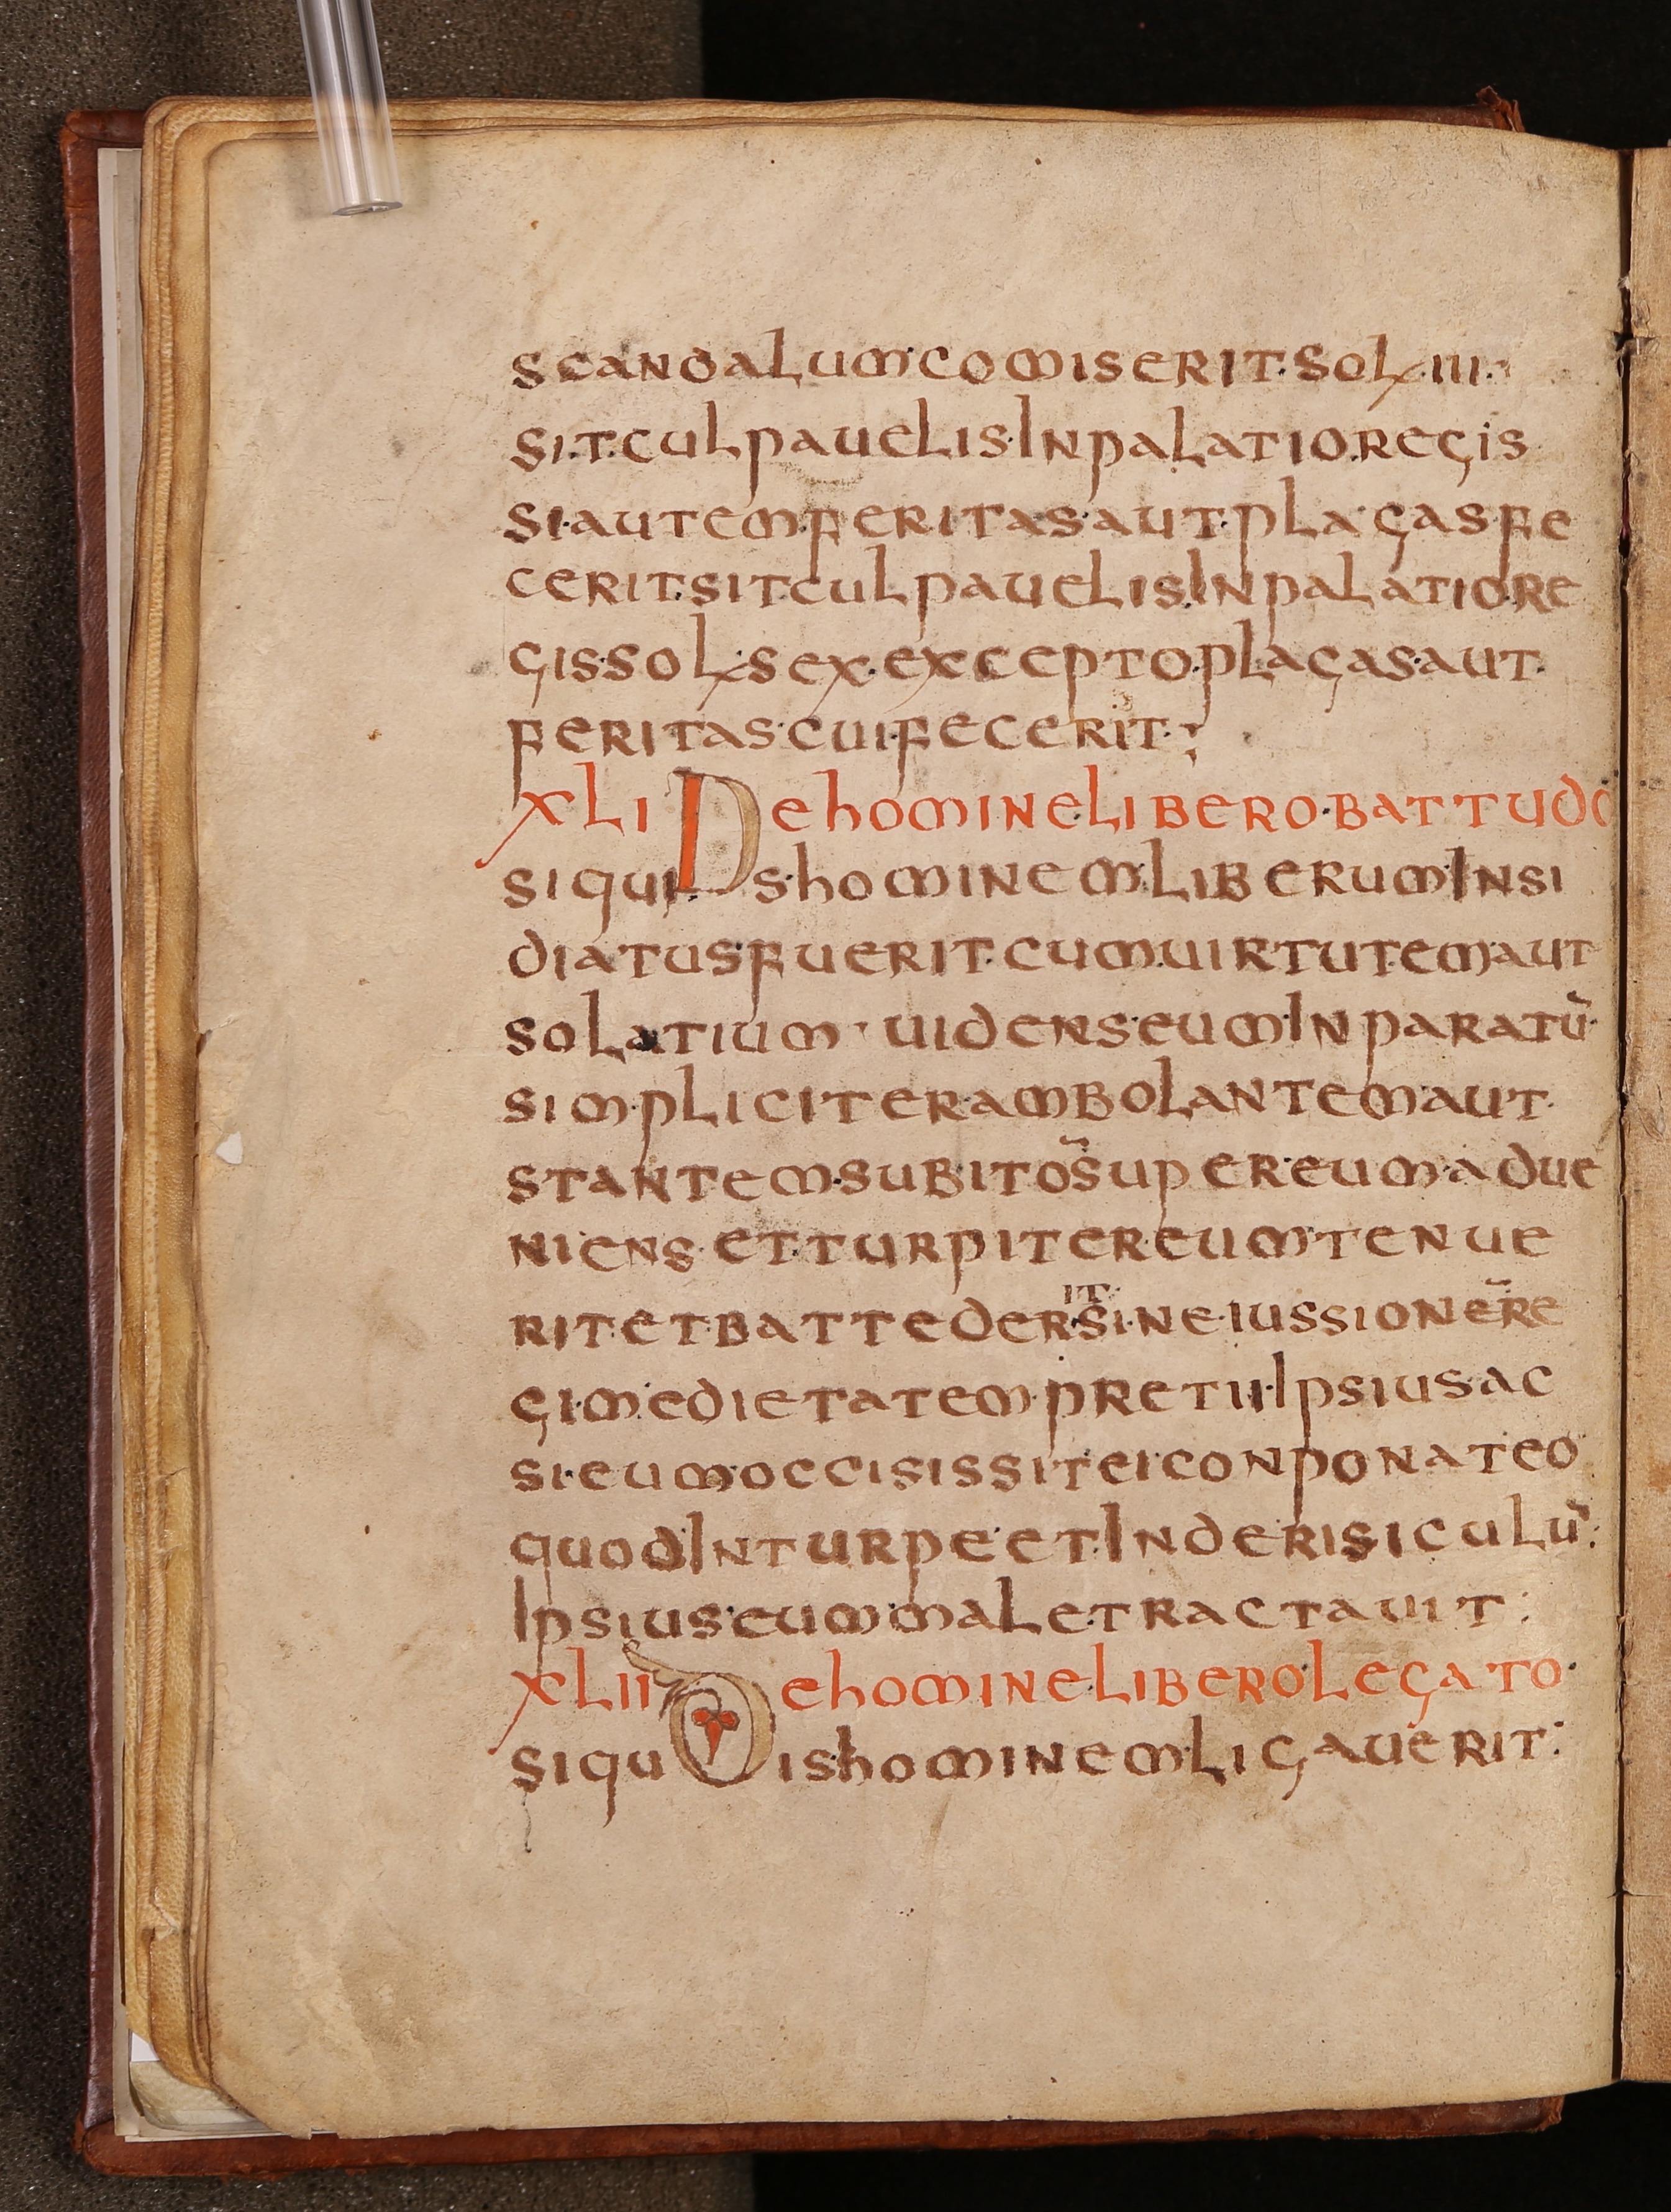 scandalum comiserit· sol· iii·
sit· culpauelis· in palatio· regis
si· autem· feritas· aut· plagas fe
cerit· sit· culpauelis· in palatio· re
gis· sol· sex· excepto· plagas· aut·
feritas· cui· fecerit·;
XLI De homine· libero· battudo
si quis· hominem· liberum insi
diatus· fuerit· cum· uirtutem· aut
solatium · uidens· eum· in paratū·
simpliciter· ambolantem· aut·
stantem· subitō super eum· adue
niens· et· turpiter eum· tenue
rit· et· battederit· sine· iussionē re
gi· medietatem· pretii· ipsius· ac
si· eum· occisissit ei conponat eo
quod in turpe et· in derisiculū·
ipsius· eum· male· tractauit :
XLII De homine· libero legato·
si quis hominem· ligauerit: